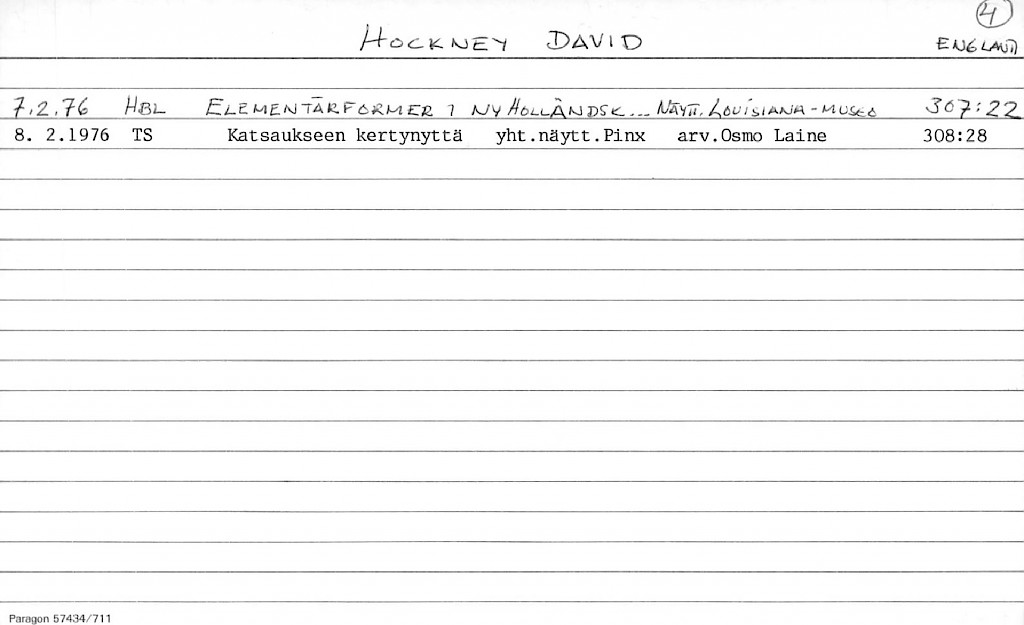 4
HOCKNEY DAVID ENGLAND
7.2.76 HBL ELEMENTÄRFORMER I NY HOLLÄNDSK... NÄYTT. LOUISIANA-MUSEO 307:22
8. 2.1976 TS Katsaukseen kertynyttä yht.näytt.Pinx arv.Osmo Laine 308:28
Paragon 57434/711